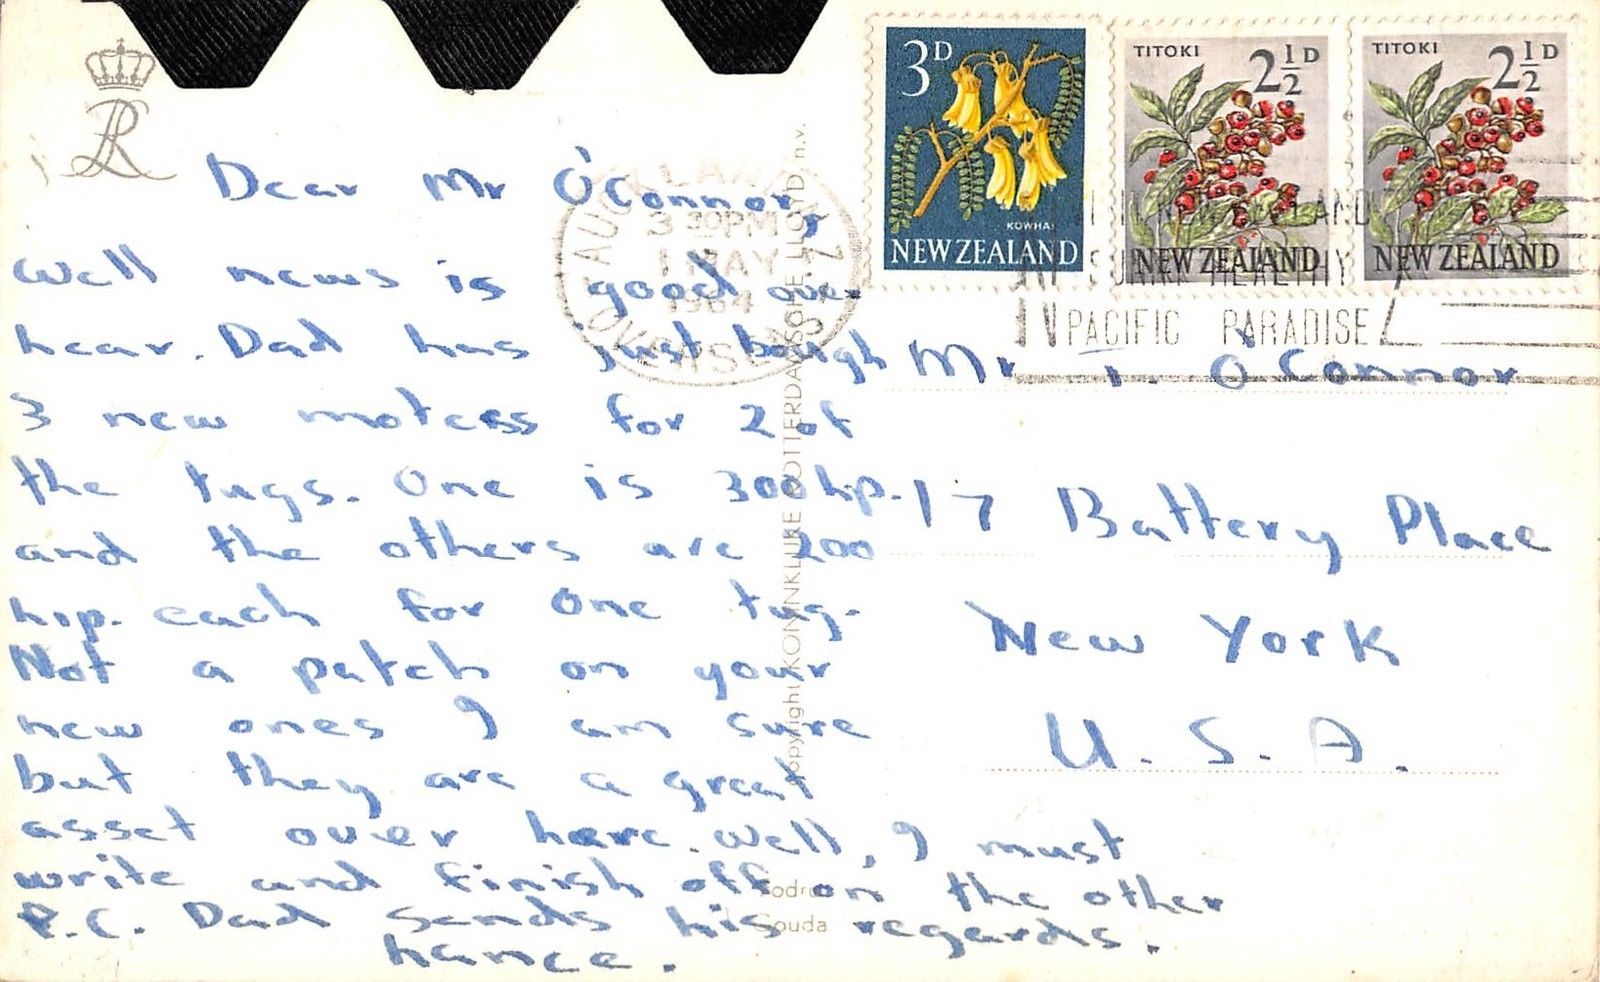 Dear Mr O'Connor,
Well news is good over
hear. Dad has just bough
3 new moters for 2 of
the tugs. One is 300 hp.
and the others are 200
h.p. each for one tug.
Not a patch on your
new ones I am sure
but they are a great
asset over here. Well, I must
write and finish off on the other
P.C. Dad sends his regards.
hance.
Mr T. O'Connor
17 Battery Place
New York
U. S. A.
3D
KOWHAI
NEW ZEALAND
TITOKI
2½D
NEW ZEALAND
TITOKI
2½D
NEW ZEALAND
AUCKLAND N.Z.
3 30PM
1 MAY
1964
HEALTHY
PACIFIC PARADISE
copyright KONINKLIJKE ROTTERDAMSCHE LLOYD n.v.
Gouda